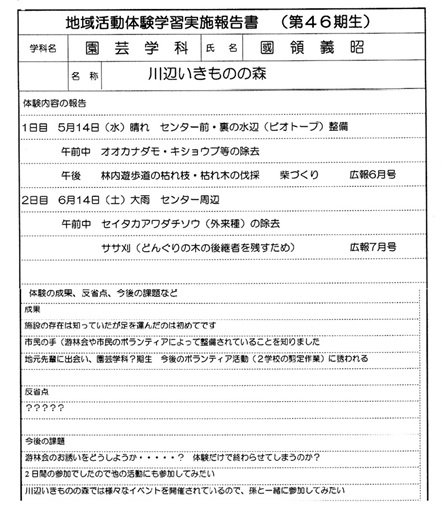 地域活動体験学習実施報告書 （第４６期生）
学科名 園芸学科 氏名 國領義昭
名称 川辺いきものの森
体験内容の報告
1日目 5月14日（水）晴れ センター前・裏の水辺（ビオトープ）整備
午前中 オオカナダモ・キショウブ等の除去
午後 林内遊歩道の枯れ枝・枯れ木の伐採 柴づくり 広報6月号
2日目 6月14日（土）大雨 センター周辺
午前中 セイタカアワダチソウ（外来種）の除去
ササ刈（どんぐりの木の後継者を残すため） 広報7月号
体験の成果、反省点、今後の課題など
成果
施設の存在は知っていたが足を運んだのは初めてです
市民の手（游林会や市民のボランティアによって整備されていることを知りました
地元先輩に出会い、園芸学科？期生 今後のボランティア活動（２学校の剪定作業）に誘われる
反省点
？？？？？
今後の課題
游林会のお誘いをどうしようか・・・・・？ 体験だけで終わらせてしまうのか？
２日間の参加でしたので他の活動にも参加してみたい
川辺いきものの森では様々なイベントを開催されているので、孫と一緒に参加してみたい